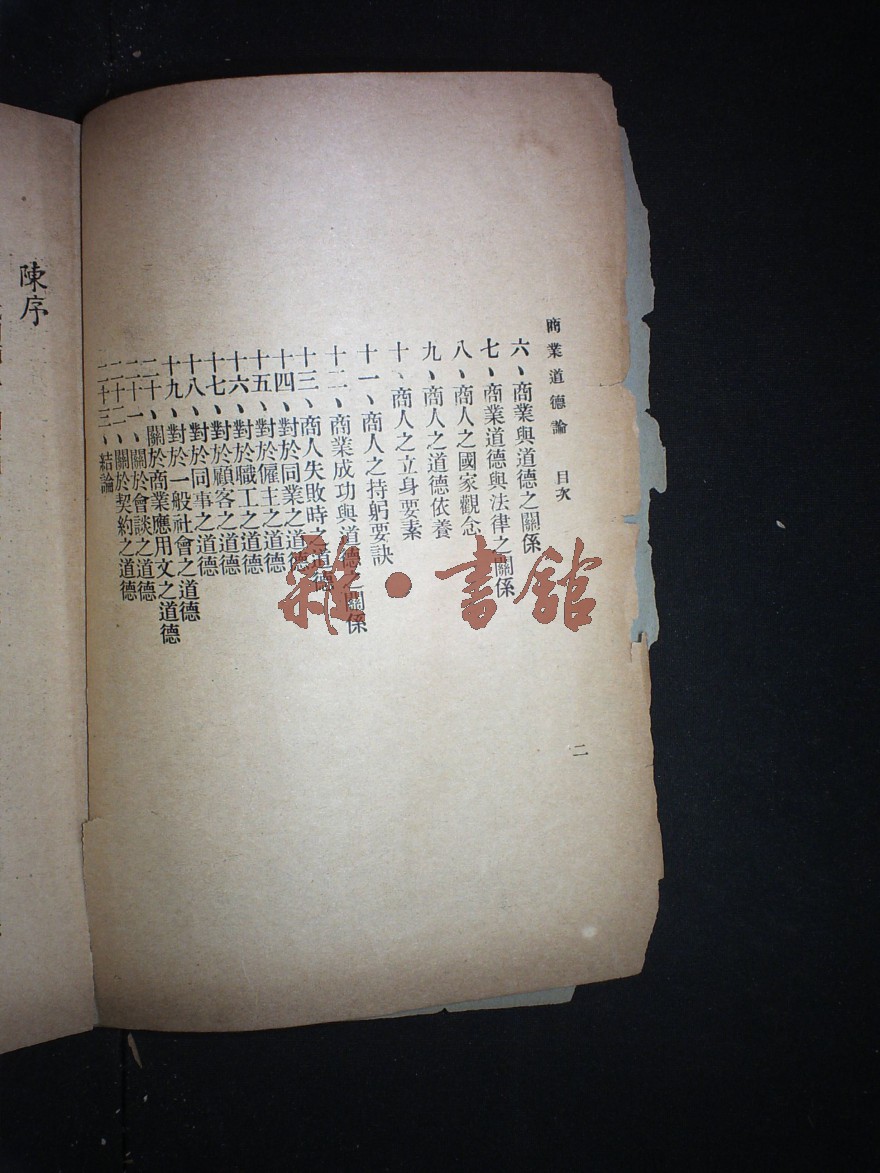 商業道德論 目次
六、商業與道德之關係
七、商業道德與法律之關係
八、商人之國家觀念
九、商人之道德依養
十、商人之立身要素
十一、商人之持躬要訣
十二、商業成功與道德之關係
十三、商人失敗時之道德
十四、對於同業之道德
十五、對於僱主之道德
十六、對於職工之道德
十七、對於顧客之道德
十八、對於同事之道德
十九、對於一般社會之道德
二十、關於商業應用文之道德
二十一、關於會談之道德
二十二、關於契約之道德
二十三、結論
二
陳序
雜·書館